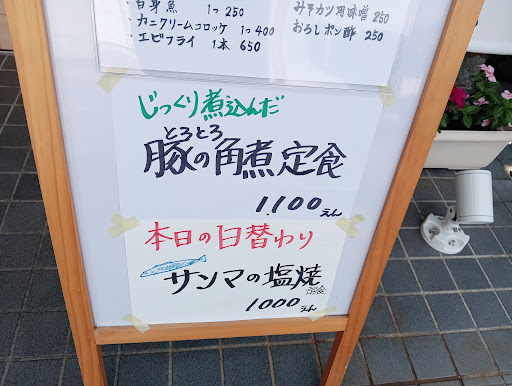 ・白身魚 1つ 250
・カニクリームコロッケ 1つ 400
・エビフライ 1本 650
みそカツ用味噌 250
おろしポン酢 250
じっくり煮込んだ
とろとろ
豚の角煮定食
1,100えん
本日の日替わり
サンマの塩焼定食
1000えん